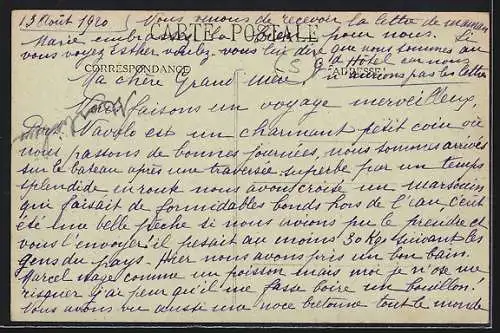 13 Août 1920 (Nous venons de recevoir la lettre de maman
CARTE POSTALE
Marie embrassez la bien pour nous. Si
vous voyez Esther voulez-vous lui dire que nous sommes au
Gd Hotel car nous
CORRESPONDANCE
ADRESSE
n'aurions pas les lettres
Ma chère Grand'mère,
Nous faisons un voyage merveilleux,
est un charmant petit coin où
nous passons de bonnes journées, nous sommes arrivés
sur le bateau après une traversée superbe par un temps
splendide en route nous avons croisé un marsouin
qui faisait de formidables bonds hors de l'eau, c'eut
été une belle pêche si nous avions pu le prendre et
vous l'envoyer il pesait au moins 30 kgs suivant les
gens du pays. Hier nous avons pris un bon bain.
Marcel nage comme un poisson mais moi je n'ose me
risquer j'ai peur qu'il me fasse boire un bouillon!
Nous avons vu aussi une noce bretonne tout le monde